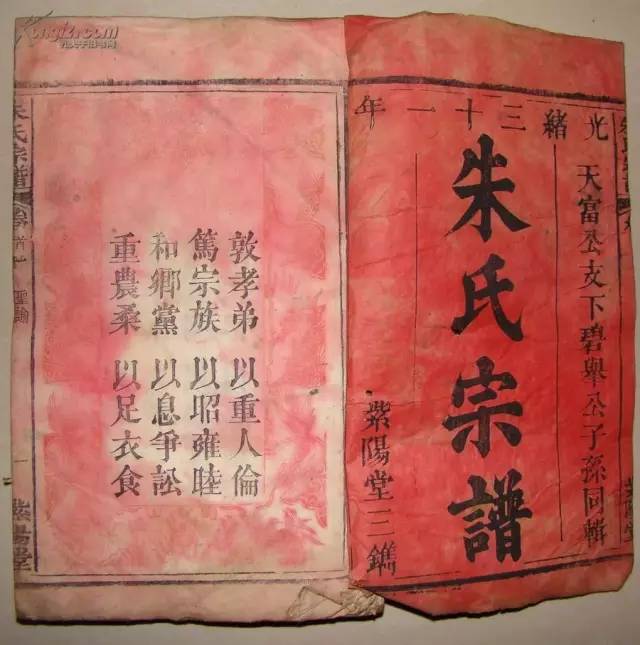 光緒三十一年
天富公支下碧舉公子孫同輯
朱氏宗譜
紫陽堂三鐫
敦孝弟 以重人倫
篤宗族 以昭雍睦
和鄉黨 以息爭訟
重農桑 以足衣食
朱氏宗譜
卷首上 聖諭
一
紫陽堂
kongfz.com
孔夫子旧书网